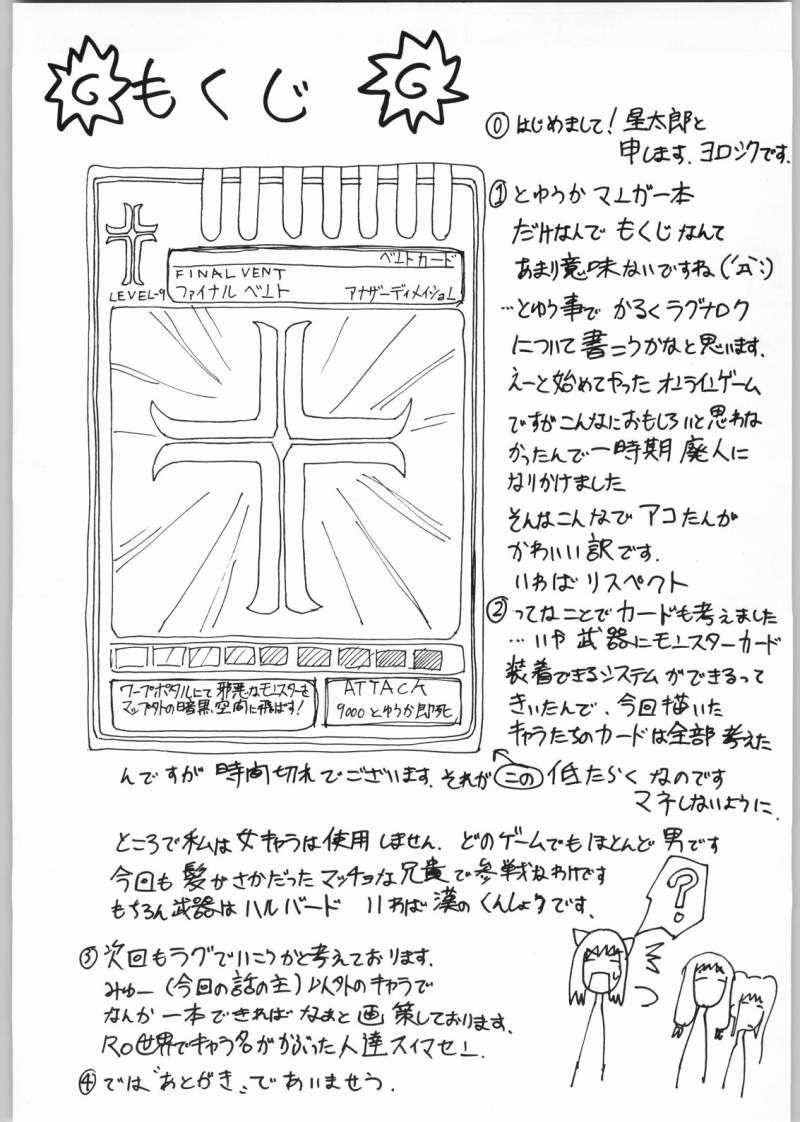 もくじ
⓪はじめまして!星太郎と
申します。ヨロシクです。
ベントカード
FINAL VENT
ファイナル ベント
アナザーディメイション
LEVEL-9
ワープポタルにて邪悪なモンスターを
マップ外の暗黒空間に飛ばす!
ATTACK
9000とゆうか即死
①とゆうかマンガ一本
だけなんで もくじなんて
あまり意味ないですね(´Д`;)
…とゆう事で かるくラグナロク
について書こうかなと思います。
えーと始めてやったオンラインゲーム
ですがこんなにおもしろいと思わな
かったんで一時期 廃人に
なりかけました
そんなこんなで アコたんが
かわいい訳です。
いわば リスペクト
②ってなことでカードも考えました
…いや 武器にモンスターカード
装着できるシステムができるって
きいたんで、今回描いた
キャラたちのカードは全部考えた
んですが 時間切れでございます。それが この 低たらく なのです
マネしないように。
ところで私は女キャラは使用しません。どのゲームでもほとんど男です
今回も髪がさかだったマッチョな兄貴で参戦なわけです
もちろん武器はハルバード いわば漢のくんしょうです。
③次回もラグでいこうかと考えております。
みゅー(今回の話の主)以外のキャラで
なんか一本できればなぁと画策しております。
RO世界でキャラ名がかぶった人達スイマセン。
④では"あとがき"であいませう.
?